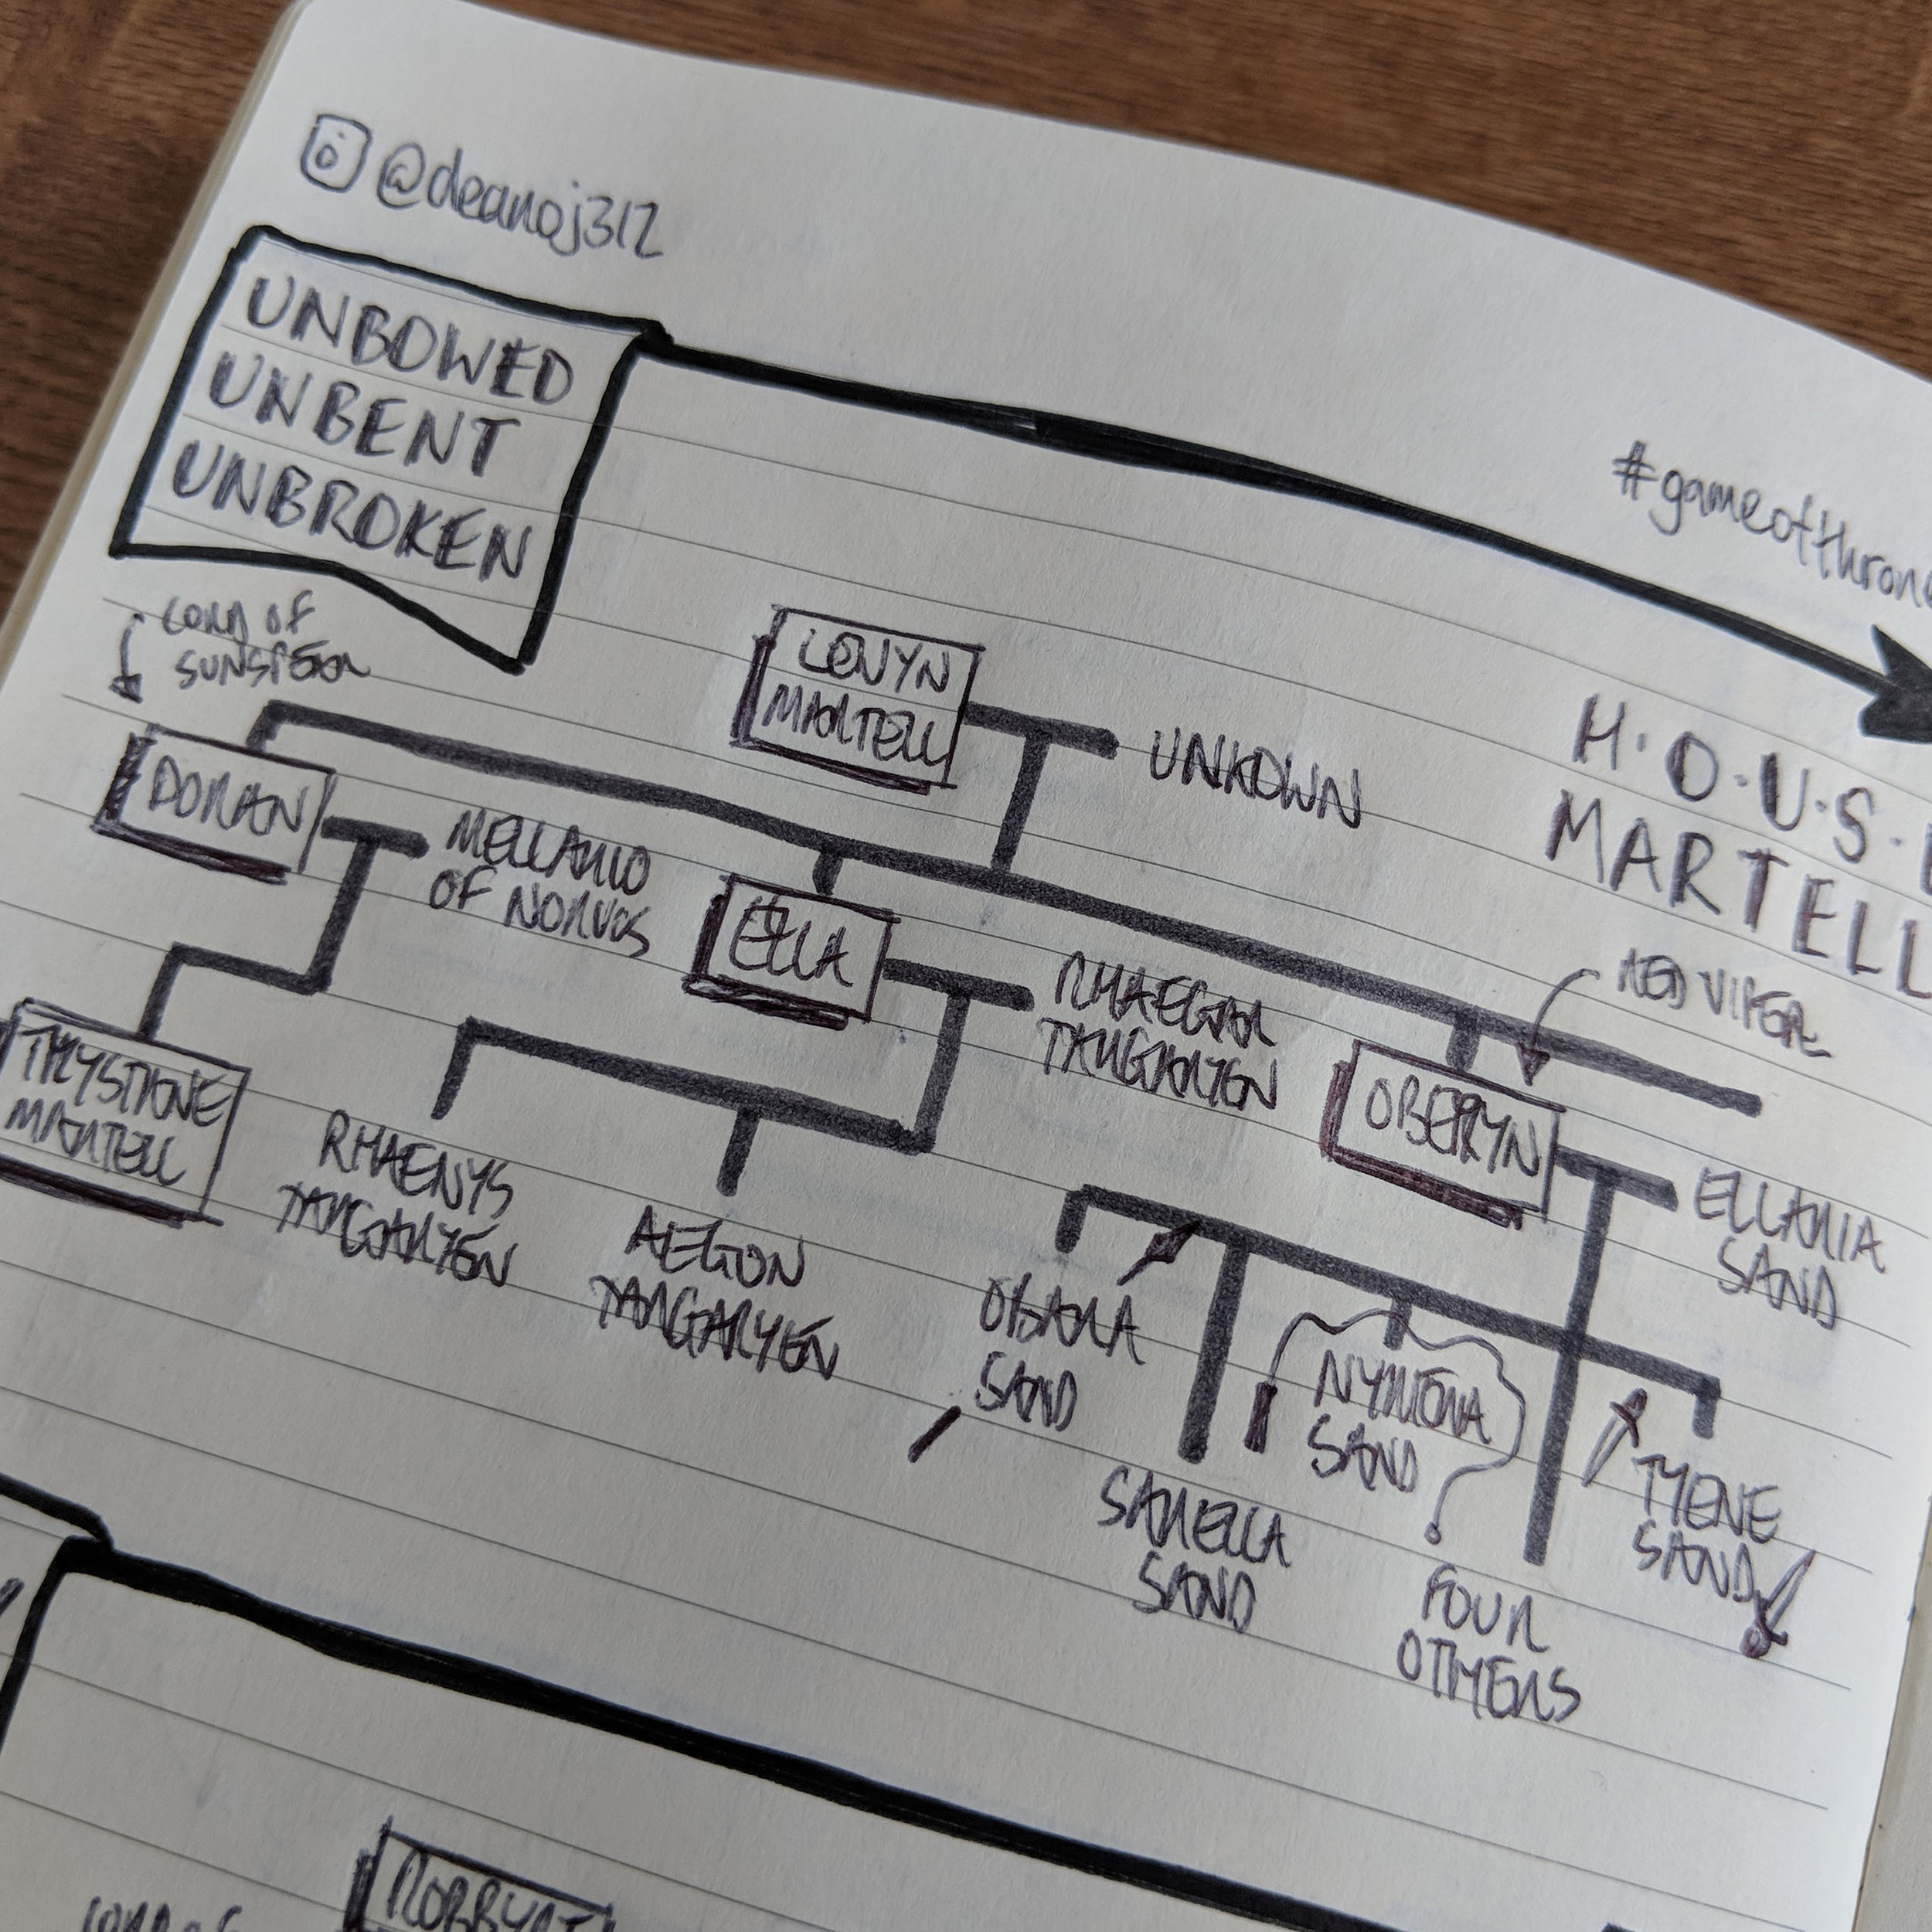 @deanoj312
UNBOWED
UNBENT
UNBROKEN
#gameofthron
LORD OF
SUNSPEAR
LEWYN
MARTELL
UNKOWN
H.O.U.S.E
MARTELL
DORAN
MELLARIO
OF NORVOS
ELLA
RHAEGAR
TARGARYEN
RED VIPER
OBERYN
ELLARIA
SAND
TRYSTANE
MARTELL
RHAENYS
TARGARYEN
AEGON
TARGARYEN
OBARA
SAND
SARELLA
SAND
NYMERIA
SAND
TYENE
SAND
FOUR
OTHERS
LORD OF